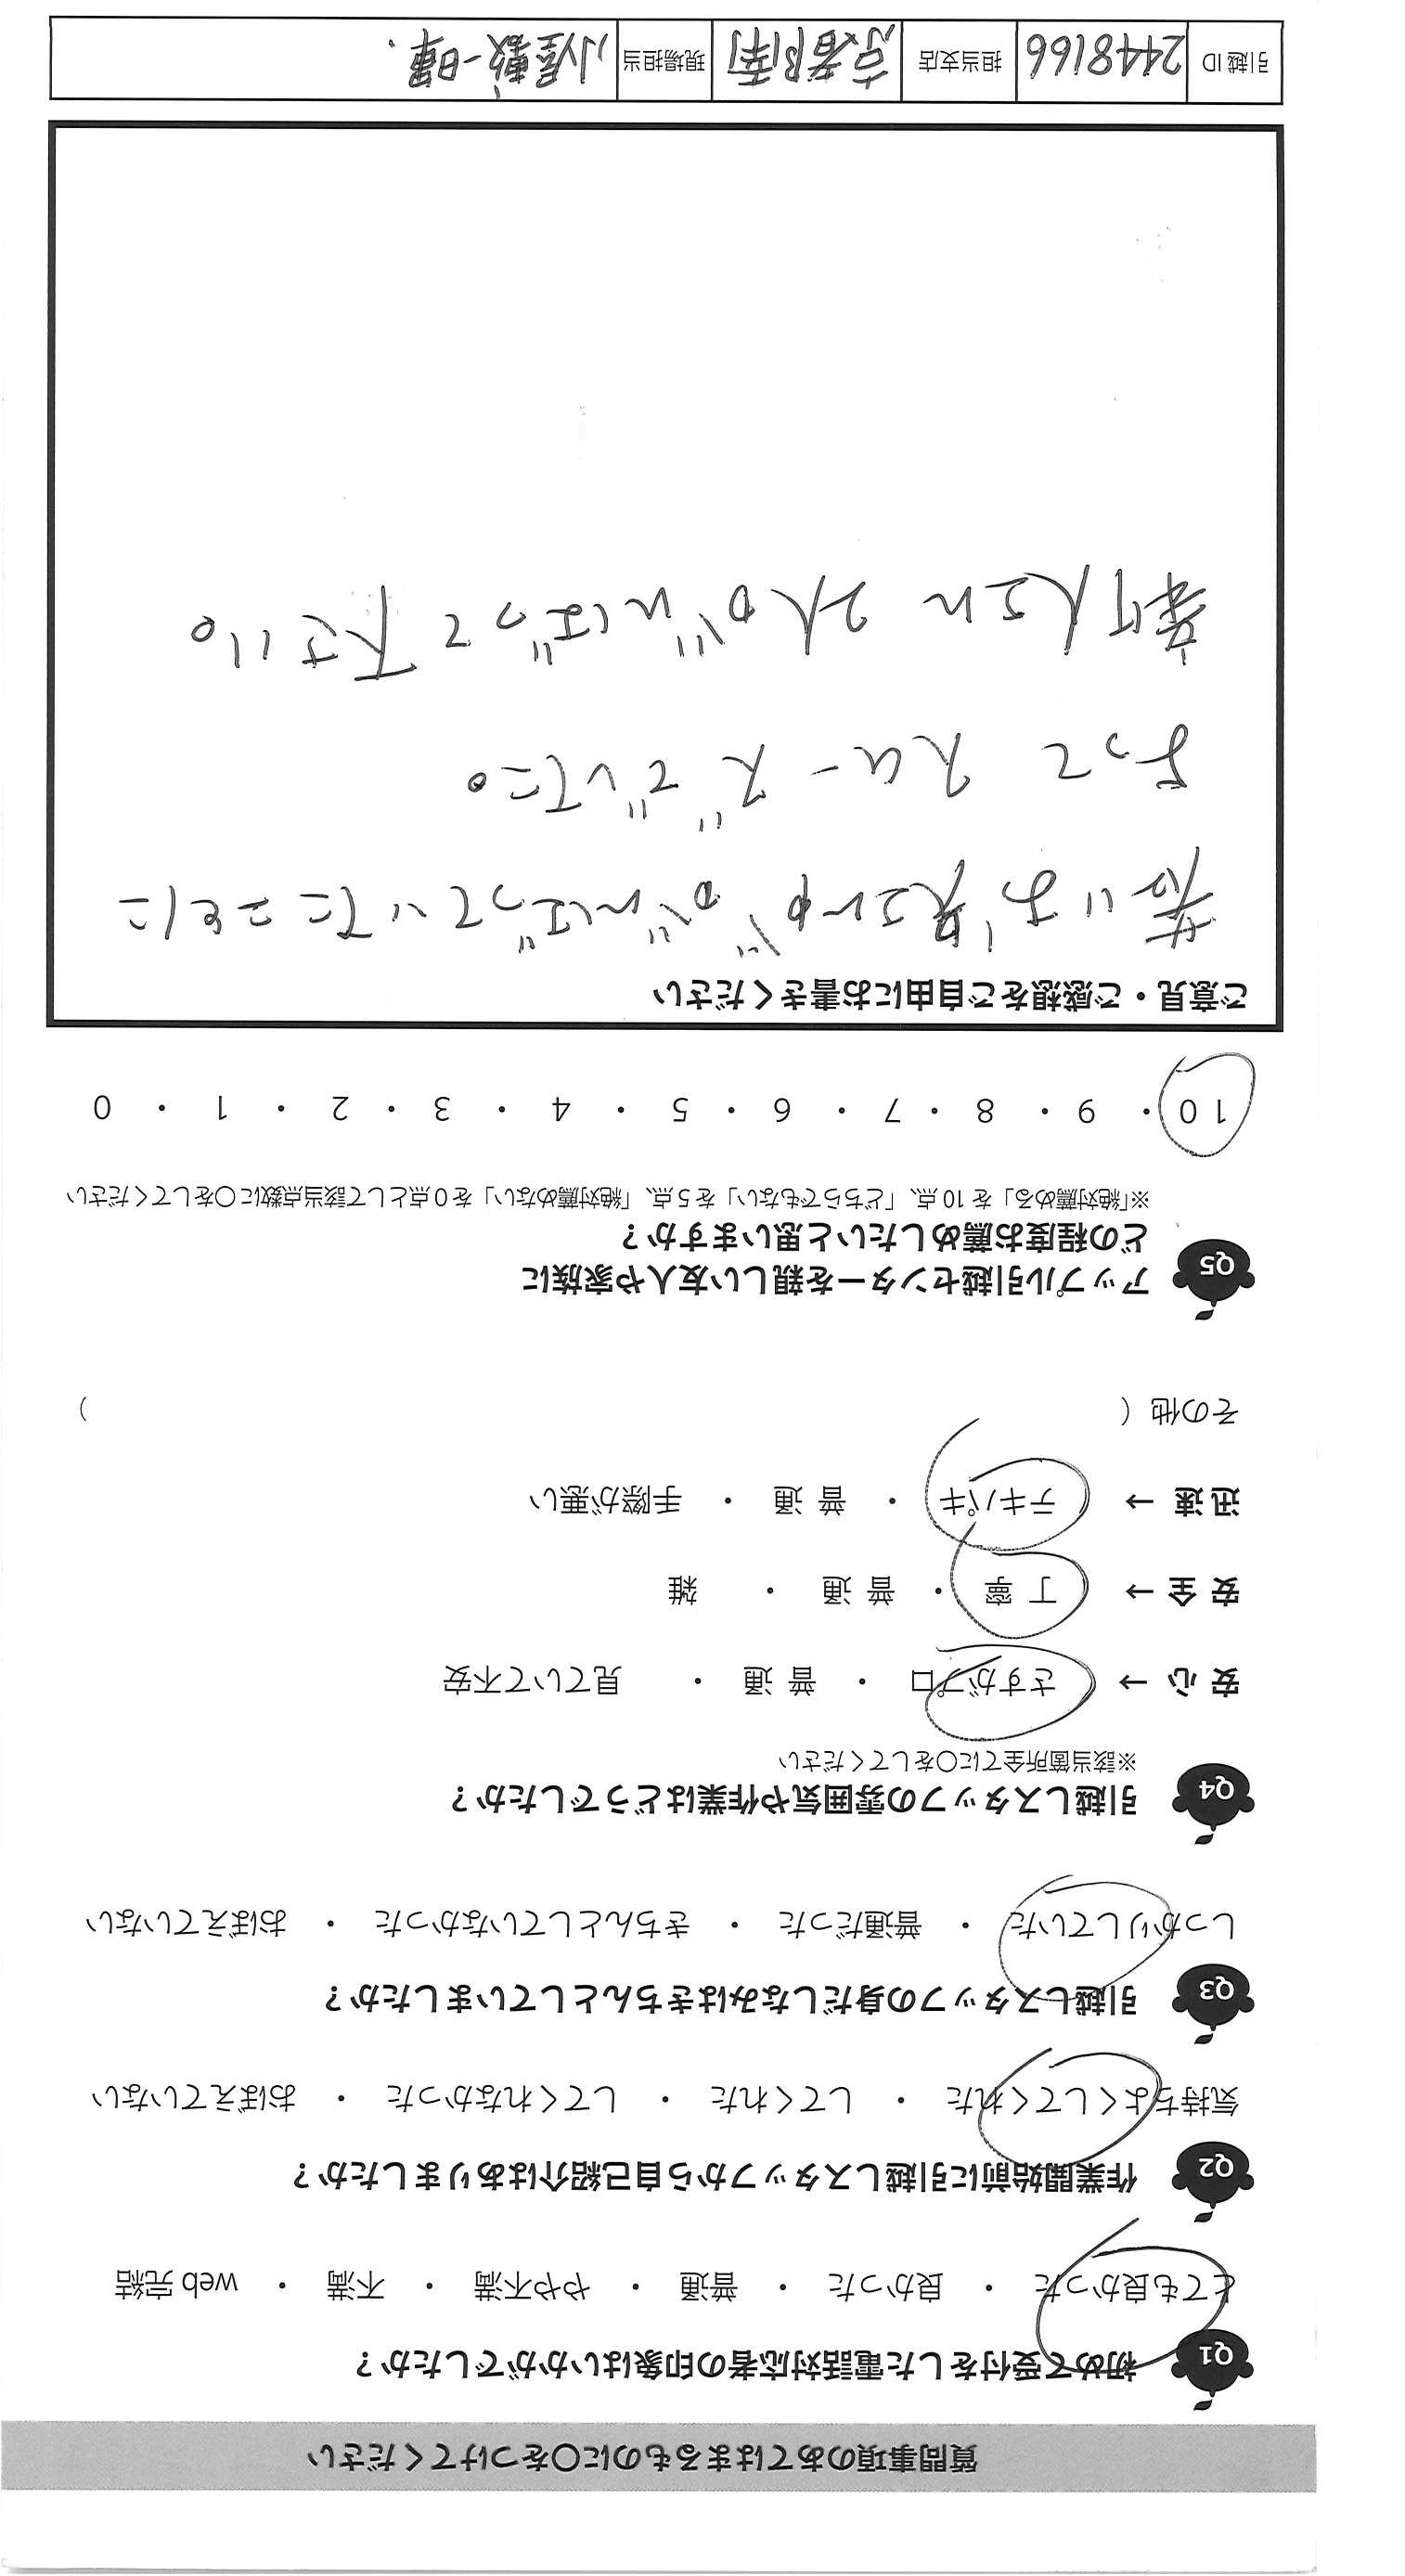 質問事項のあてはまるものに○をつけてください
Q1 初めて受付をした電話対応者の印象はいかがでしたか？
とても良かった ・ 良かった ・ 普通 ・ やや不満 ・ 不満 ・ web 完結
Q2 作業開始前に引越しスタッフから自己紹介はありましたか？
気持ちよくしてくれた ・ してくれた ・ してくれなかった ・ おぼえていない
Q3 引越しスタッフの身だしなみはきちんとしていましたか？
しっかりしていた ・ 普通だった ・ きちんとしていなかった ・ おぼえていない
Q4 引越しスタッフの雰囲気や作業はどうでしたか？
※該当箇所全てに○をしてください
安 心 → さすがプロ ・ 普 通 ・ 見ていて不安
安 全 → 丁 寧 ・ 普 通 ・ 雑
迅 速 → テキパキ ・ 普 通 ・ 手際が悪い
その他 （ ）
Q5 アップル引越センターを親しい友人や家族に
どの程度お薦めしたいと思いますか？
※「絶対薦める」を 10 点、「どちらでもない」を 5 点、「絶対薦めない」を 0 点として該当点数に○をしてください
10 ・ 9 ・ 8 ・ 7 ・ 6 ・ 5 ・ 4 ・ 3 ・ 2 ・ 1 ・ 0
ご意見・ご感想をご自由にお書きください
若いお兄さんががんばっていたことに
よって スムーズでした。
新人さん 2人がんばって下さい。
引越 ID 2448166 担当支店 京都南 現場担当 小屋敷一